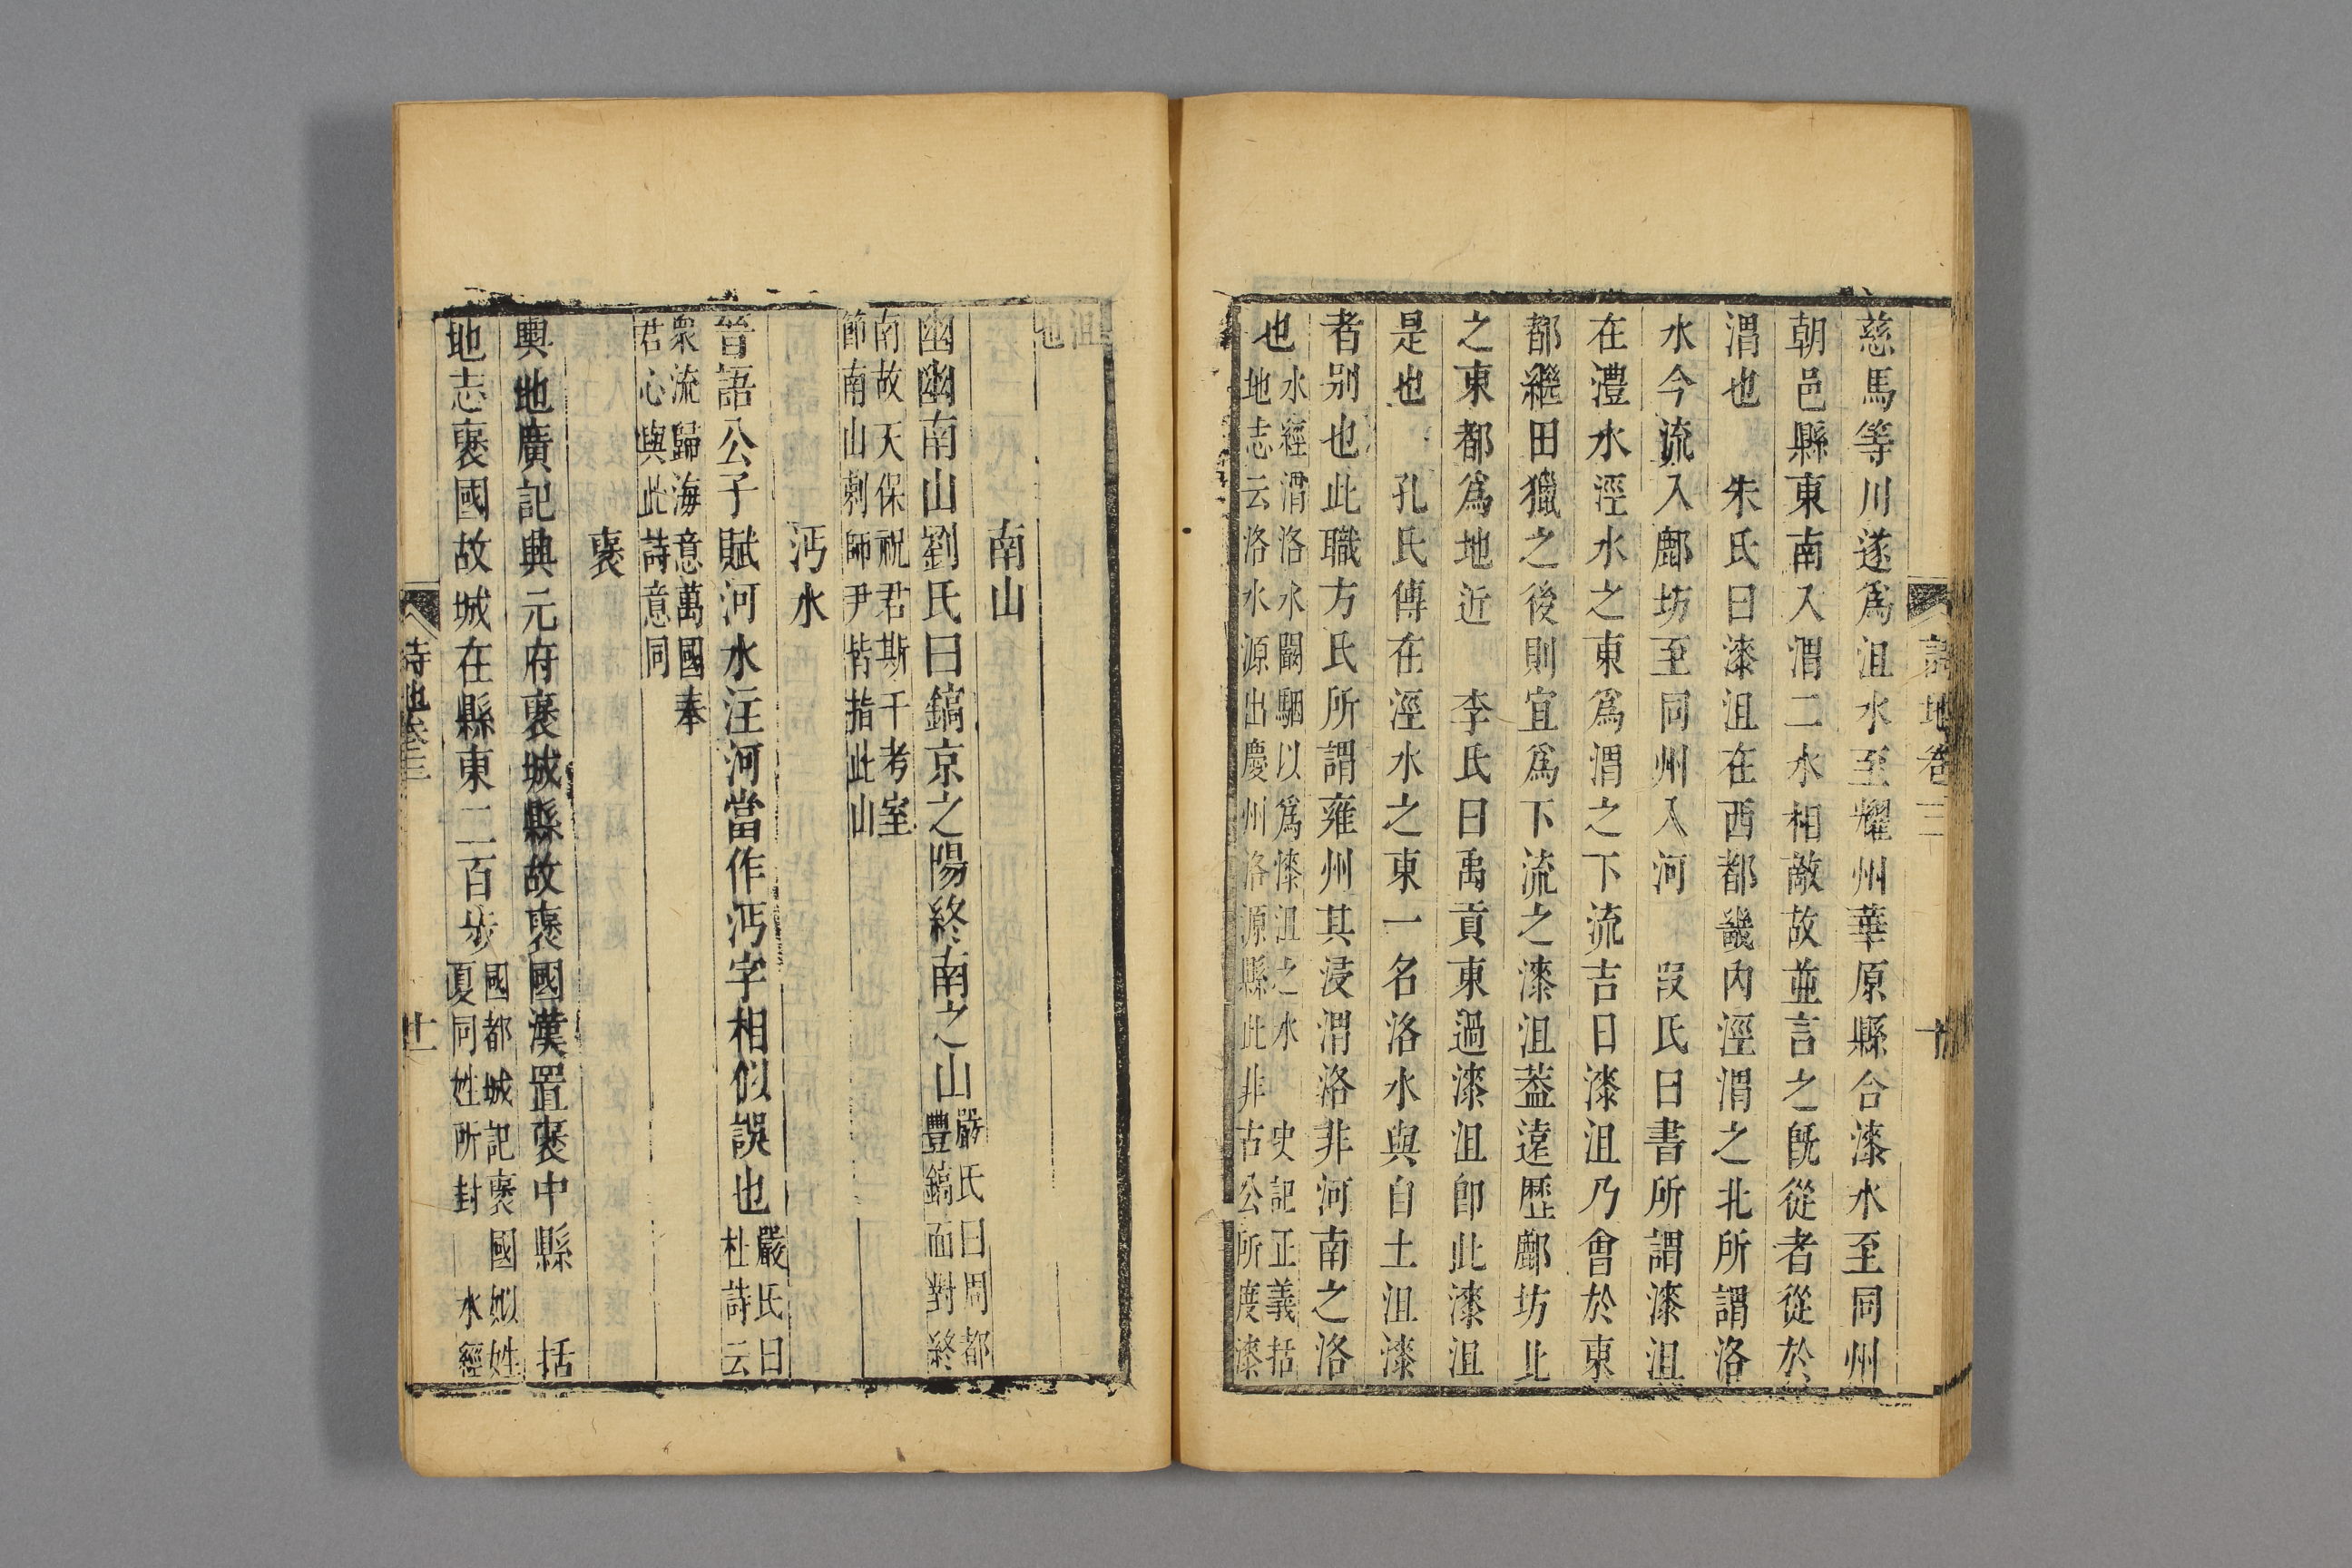 慈馬等川遂爲沮水至耀州華原縣合漆水至同州
朝邑縣東南入渭二水相敵故並言之旣從者從於
渭也　朱氏曰漆沮在西都畿內涇渭之北所謂洛
水今流入鄜坊至同州入河　段氏曰書所謂漆沮
在澧水涇水之東爲渭之下流吉日漆沮乃會於東
都繼田獵之後則宜爲下流之漆沮葢遠歷鄜坊北
之東都爲地近　李氏曰禹貢東過漆沮卽此漆沮
是也　孔氏傳在涇水之東一名洛水與白土沮漆
者别也此職方氏所謂雍州其浸渭洛非河南之洛
也
水經渭洛水嚴駰以爲漆沮之水　史記正義括
地志云洛水源出慶州洛源縣此非古公所度漆
詩地卷三
十
沮
也
南山
幽幽南山劉氏曰鎬京之陽終南之山
嚴氏曰周都
豐鎬面對終
南故天保祝君斯干考室
節南山刺師尹皆指此山
沔水
晉語公子賦河水注河當作沔字相似誤也
嚴氏曰
杜詩云
衆流歸海意萬國奉
君心與此詩意同
褒
輿地廣記興元府褒城縣故褒國漢置褒中縣　括
地志褒國故城在縣東二百步
國都城記褒國姒姓
夏同姓所封　水經
詩地卷三
十一